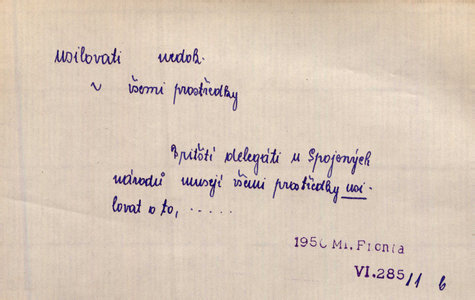 usilovati nedok.
v všemi prostředky
Britští delegáti u Spojených
národů musejí všemi prostředky usi-
lovat o to, .....
1950 Ml. Fronta
VI.285/1 6